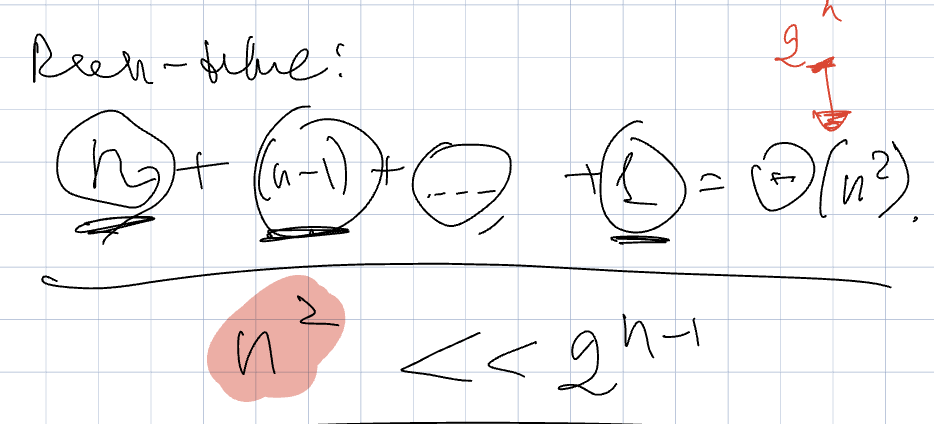 2^n
Run-time:
n + (n-1) + ---- + 1 = Θ(n²).
n² << 2^{n-1}